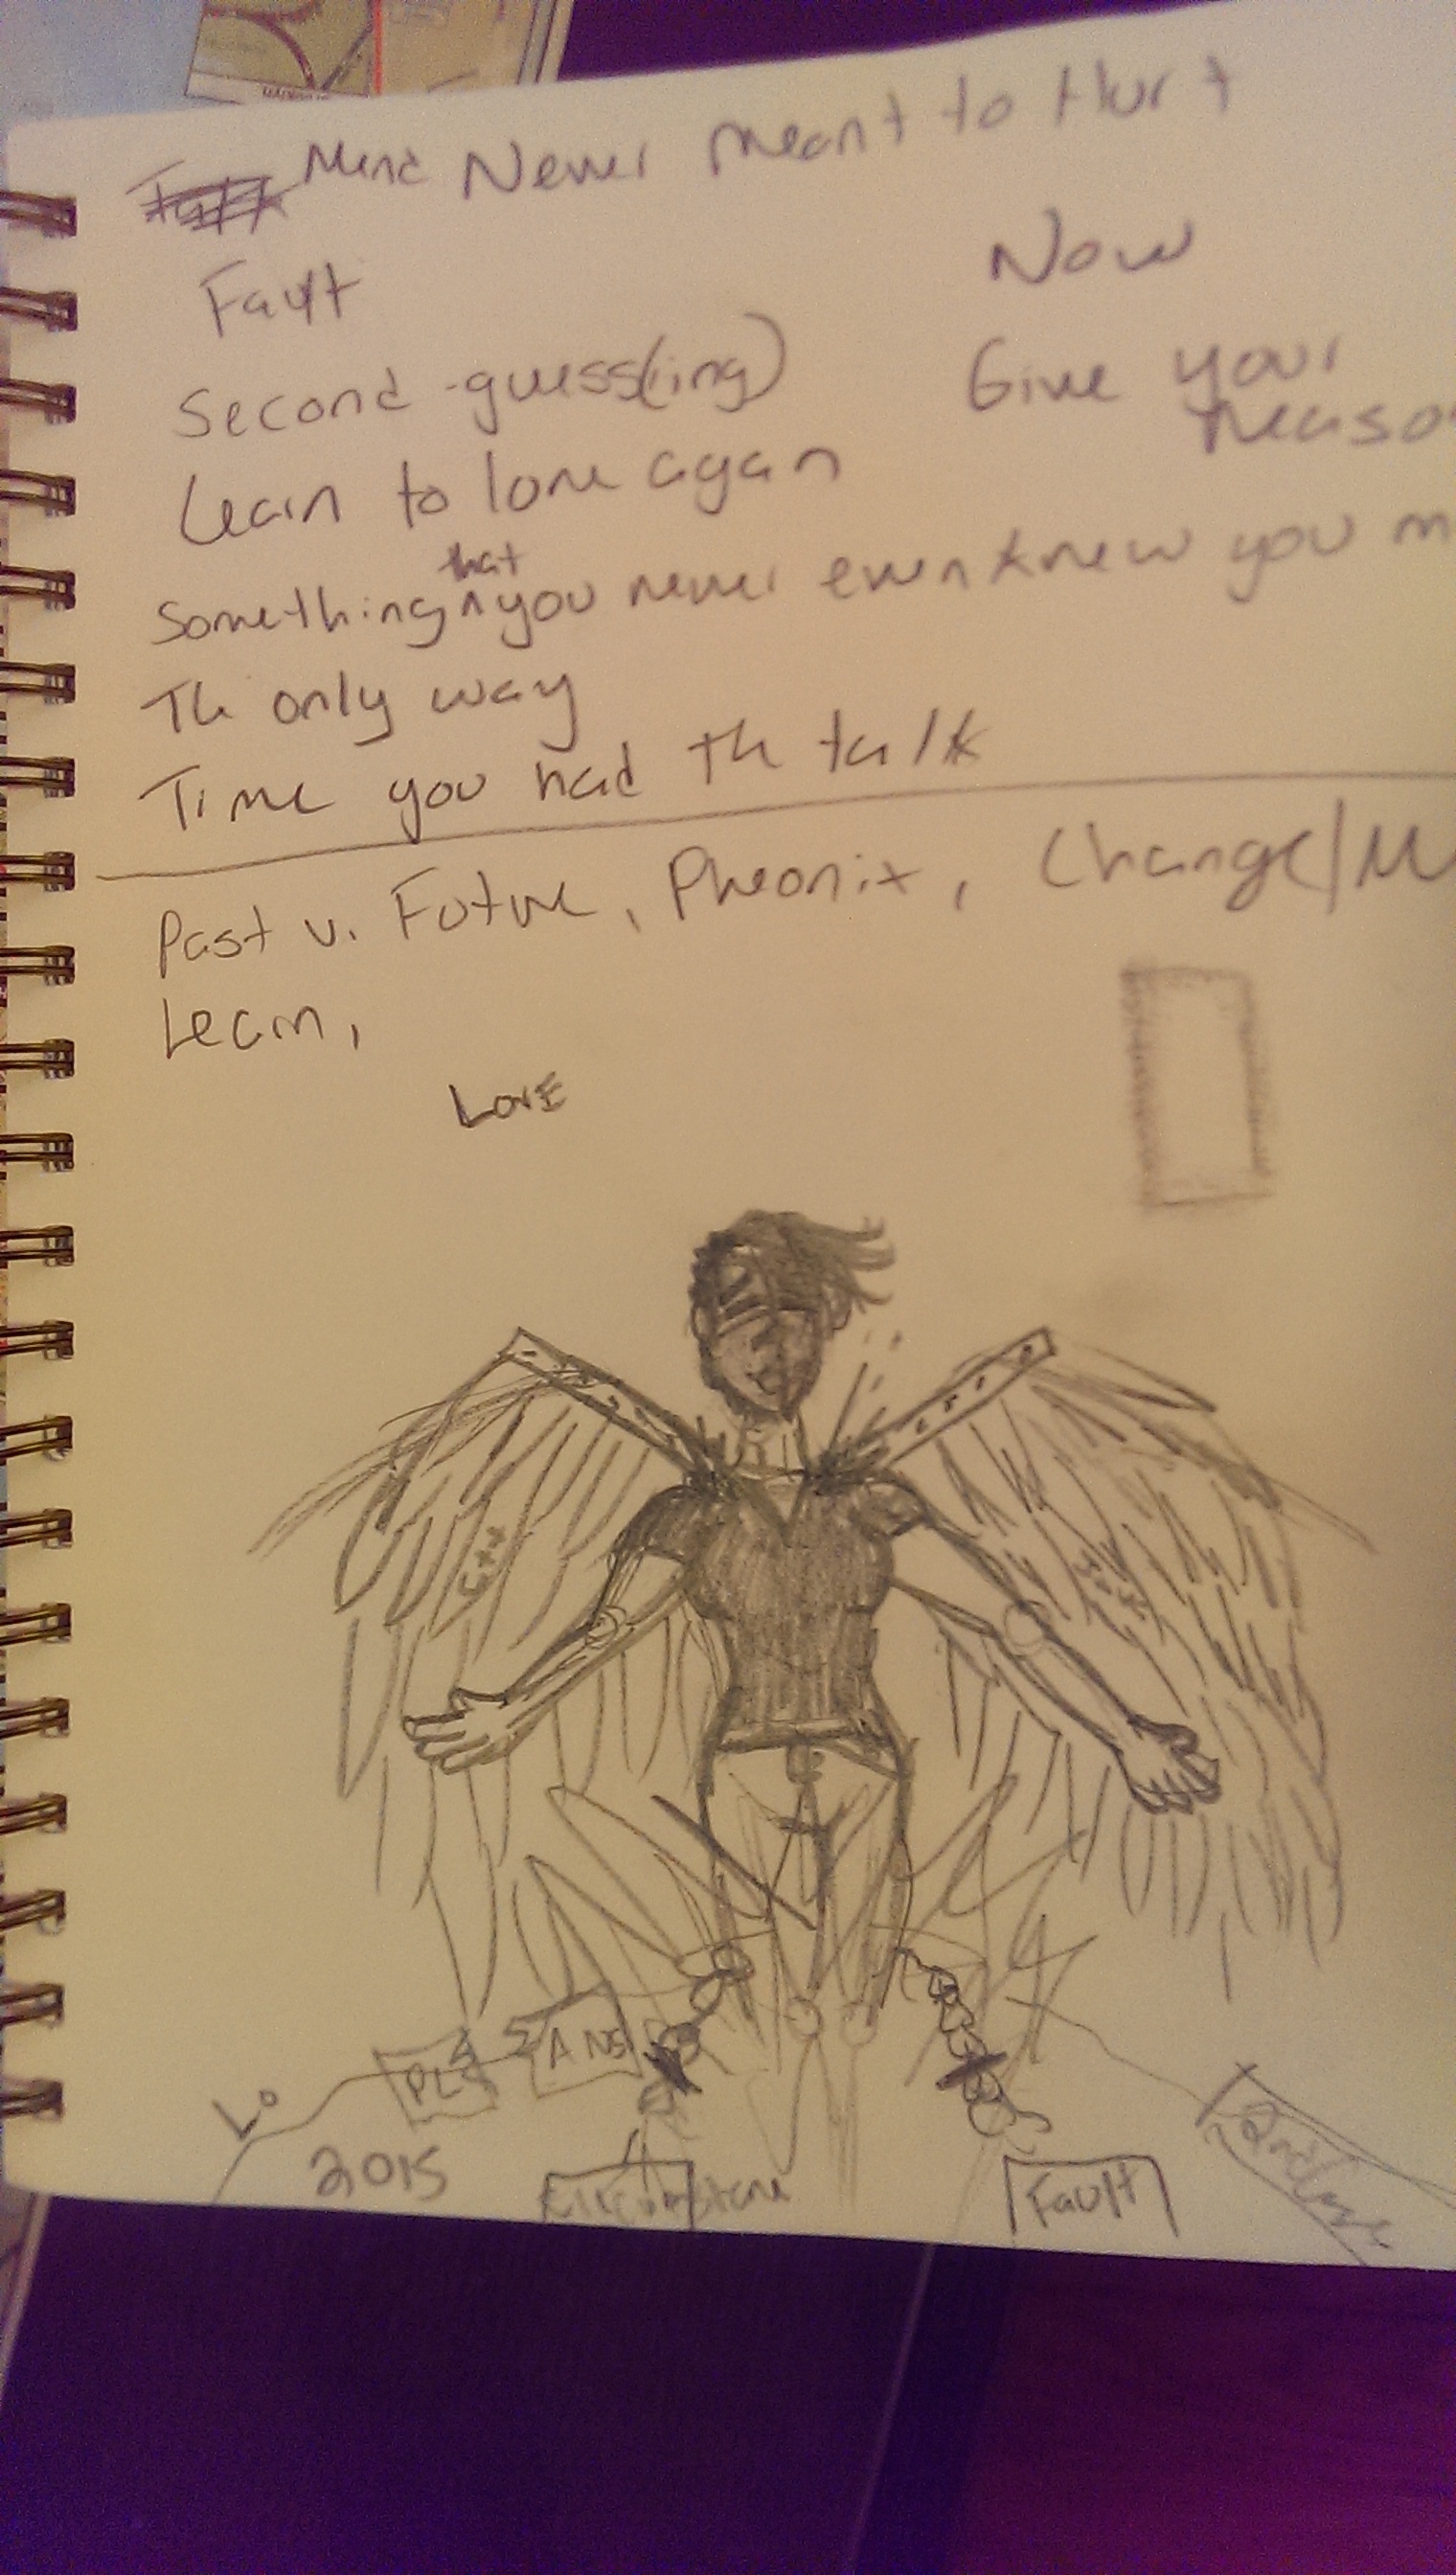 Mind Never meant to Hurt
Fault
Now
Second-guess(ing)
Give your
reaso
Learn to love again
Something that you never even knew you m
Th only way
Time you had th talk
Past v. Future, Pheonix, Change/M
Learn,
LOVE
PL
ANS
Lo
2015
Fault